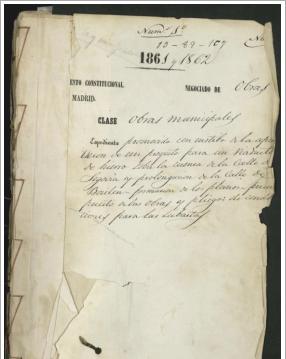 Num. 1º
10-89-107
1861 y 1862
ENTO CONSTITUCIONAL
MADRID.
NEGOCIADO DE Obras
CLASE Obras municipales
Expediente promovido con motivo de la
de un proyecto para un Viaducto
de hierro sobre la cuenca de la Calle de
Segovia y prolongacion de la Calle de
Bailen formacion de los planos, presu
puesto de las obras y pliegos de condi
ciones para las subastas